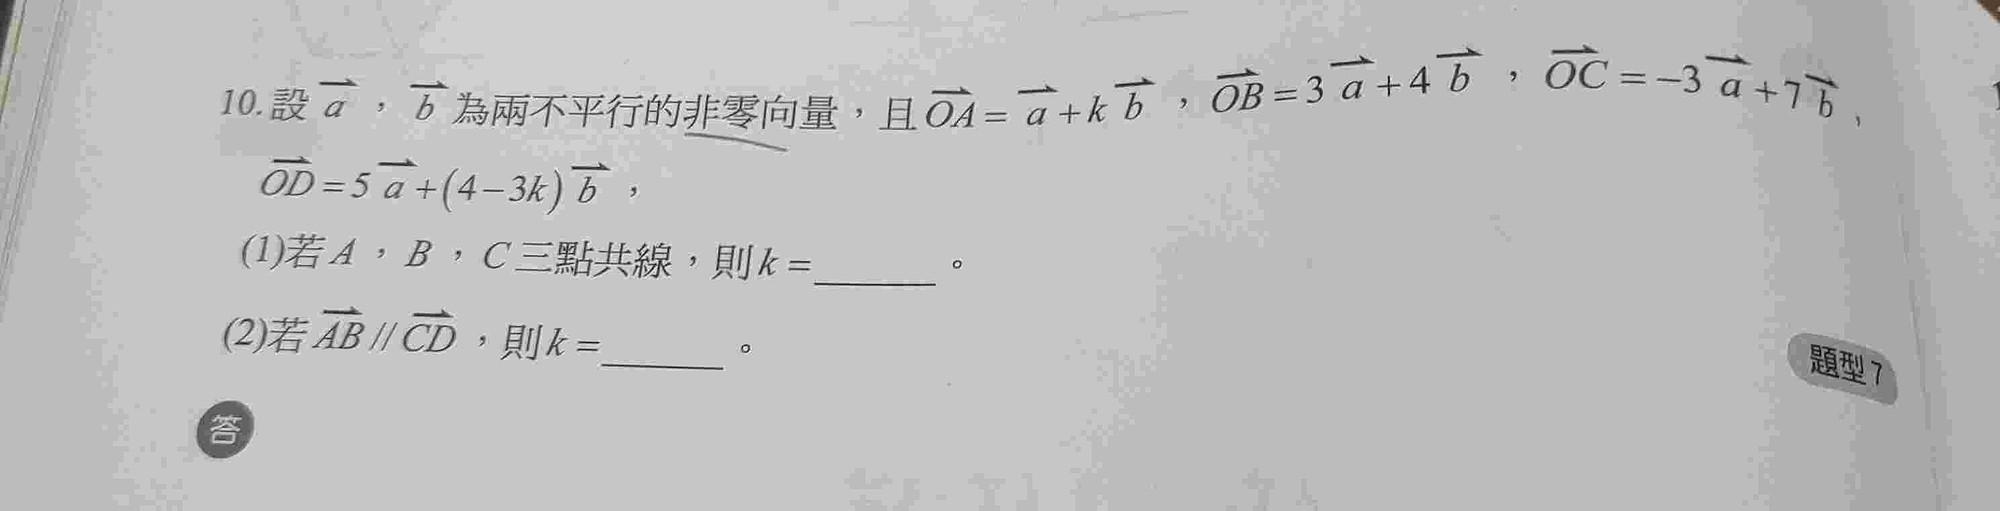 10.設 $\overrightarrow{a}$,$\overrightarrow{b}$ 為兩不平行的非零向量,且 $\overrightarrow{OA}=\overrightarrow{a}+k\overrightarrow{b}$,$\overrightarrow{OB}=3\overrightarrow{a}+4\overrightarrow{b}$,$\overrightarrow{OC}=-3\overrightarrow{a}+7\overrightarrow{b}$、
$\overrightarrow{OD}=5\overrightarrow{a}+(4-3k)\overrightarrow{b}$,
(1)若 A,B,C 三點共線,則 k=______。
(2)若 $\overrightarrow{AB}//\overrightarrow{CD}$,則 k=______。
題型7
答